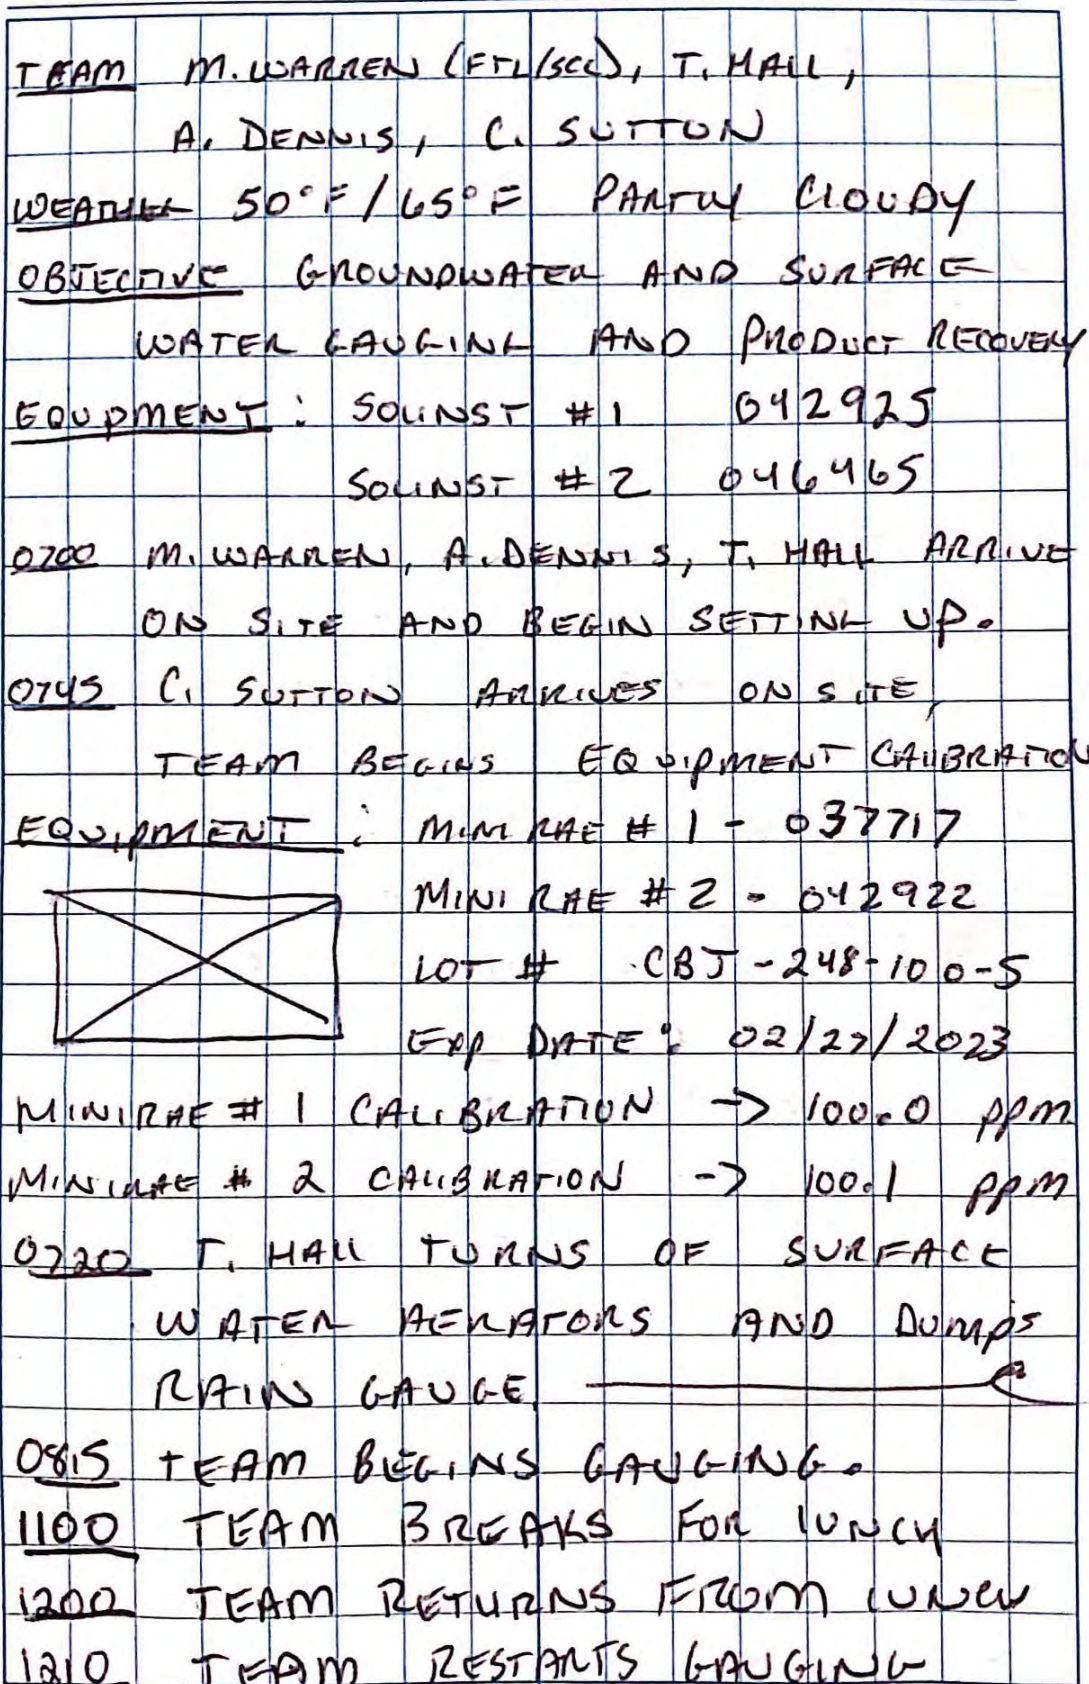 TEAM M. WARREN (FTL/SCC), T. HALL,
A. DENNIS, C. SUTTON
WEATHER 50°F/65°F PARTLY CLOUDY
OBJECTIVE GROUNDWATER AND SURFACE
WATER GAUGING AND PRODUCT RECOVERY
EQUPMENT: SOLINST #1 042925
SOLINST #2 046465
0700 M. WARREN, A. DENNIS, T. HALL ARRIVE
ON SITE AND BEGIN SETTING UP.
0745 C. SUTTON ARRIVES ON SITE,
TEAM BEGINS EQUIPMENT CALIBRATION
EQUIPMENT: MINI RAE #1 - 037717
MINI RAE #2 - 042922
LOT # CBJ-248-100-5
EXP DATE: 02/27/2023
MINIRAE #1 CALIBRATION -> 100.0 ppm
MINIRAE #2 CALIBRATION -> 100.1 ppm
0720 T. HALL TURNS OF SURFACE
WATER AERATORS AND DUMPS
RAIN GAUGE.
0815 TEAM BEGINS GAUGING.
1100 TEAM BREAKS FOR LUNCH
1200 TEAM RETURNS FROM LUNCH
1210 TEAM RESTARTS GAUGING